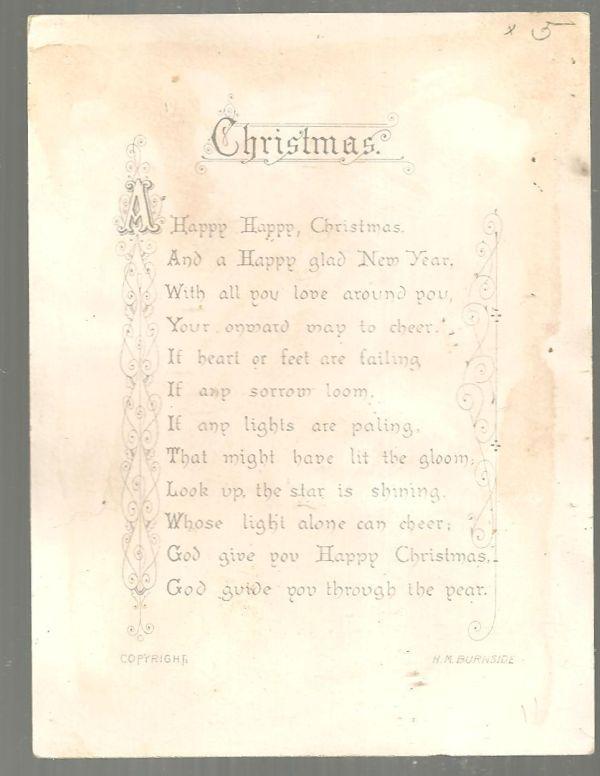 x 5
Christmas.
A Happy Happy, Christmas.
And a Happy glad New Year,
With all you love around you,
Your onward way to cheer.
If heart or feet are failing
If any sorrow loom,
If any lights are paling,
That might have lit the gloom,
Look up, the star is shining.
Whose light alone can cheer;
God give you Happy Christmas.
God guide you through the year.
COPYRIGHT.
H. M. BURNSIDE